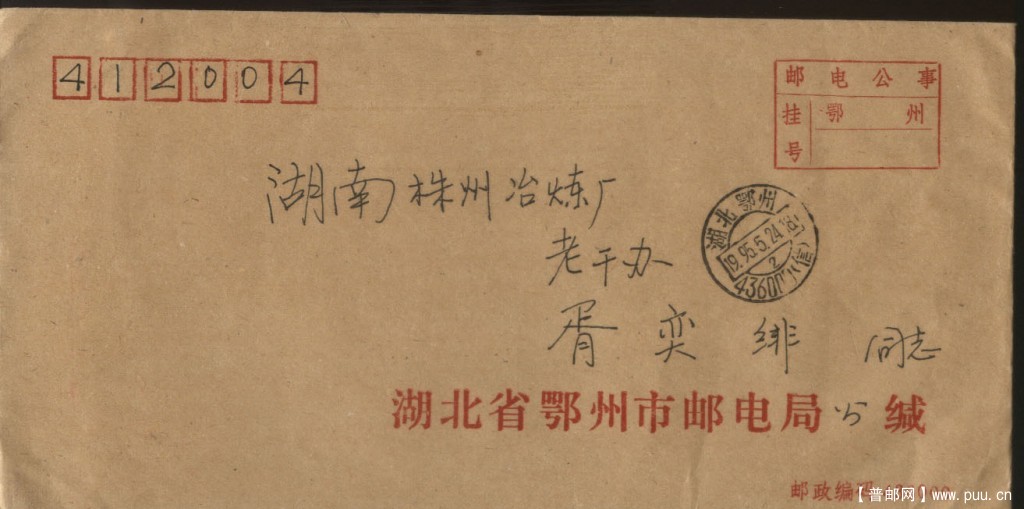 412004
邮电公事
挂号
鄂州
湖南株州冶炼厂
老干办
胥奕绯 同志
湖北鄂州
1995.5.24.18
43600 (信)
湖北省鄂州市邮电局 缄
邮政编码
【普邮网】www.puu.cn